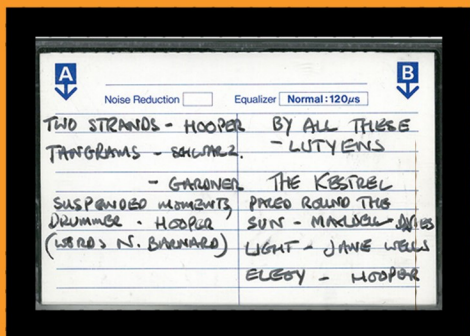 A
B
Noise Reduction
Equalizer Normal:120µs
TWO STRANDS - HOOPER
TANGRAMS - SCHWARZ.
- GARDNER
SUSPENDED MOMENTS
DRUMMER - HOOPER
(WORDS N. BARNARD)
BY ALL THESE
- LUTYENS
THE KESTREL
PACED ROUND THE
SUN - MAXWELL-DAVIES
LIGHT - JANE WELLS
ELEGY - HOOPER